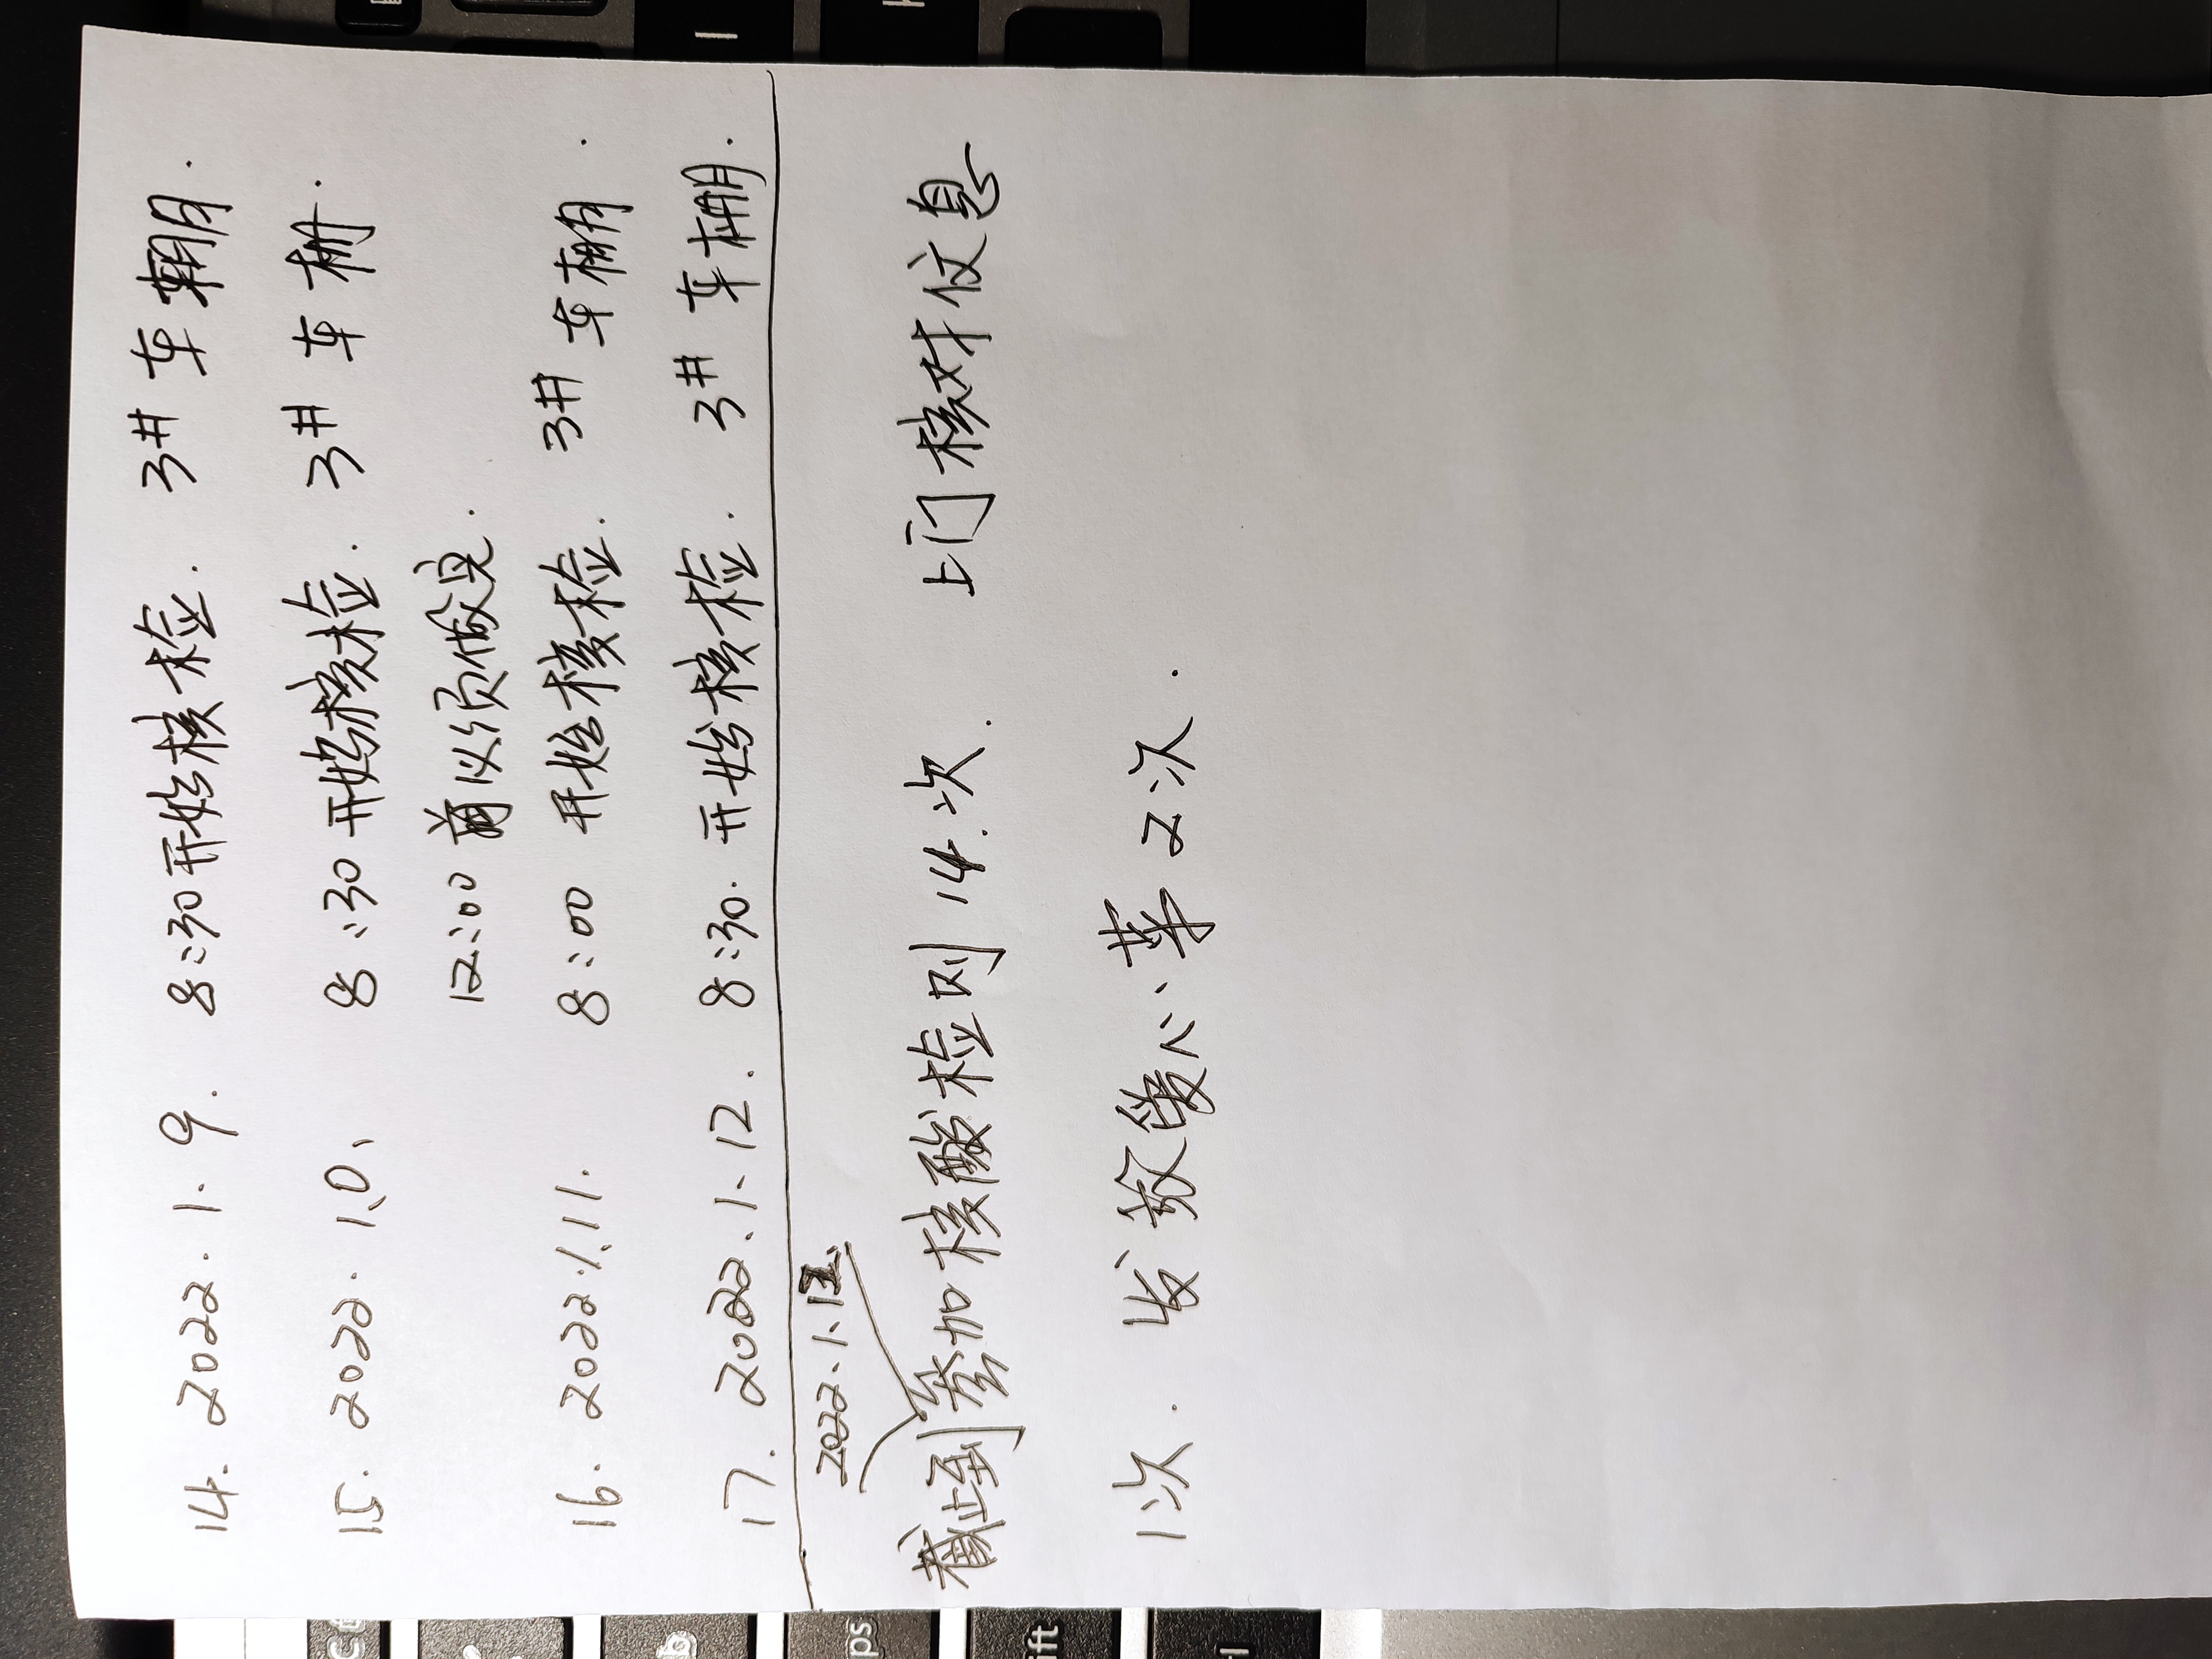 14. 2022.1.9. 8:30开始核检. 3# 车棚.
15. 2022.1.10、 8:30开始核检. 3# 车棚.
12:00 前必须做完.
16. 2022.1.11. 8:00 开始核检. 3# 车棚.
17. 2022.1.12. 8:30. 开始核检. 3# 车棚.
2022.1.12.
截止到参加核酸检测14次. 上门核对信息
1次. 发放爱心菜2次.